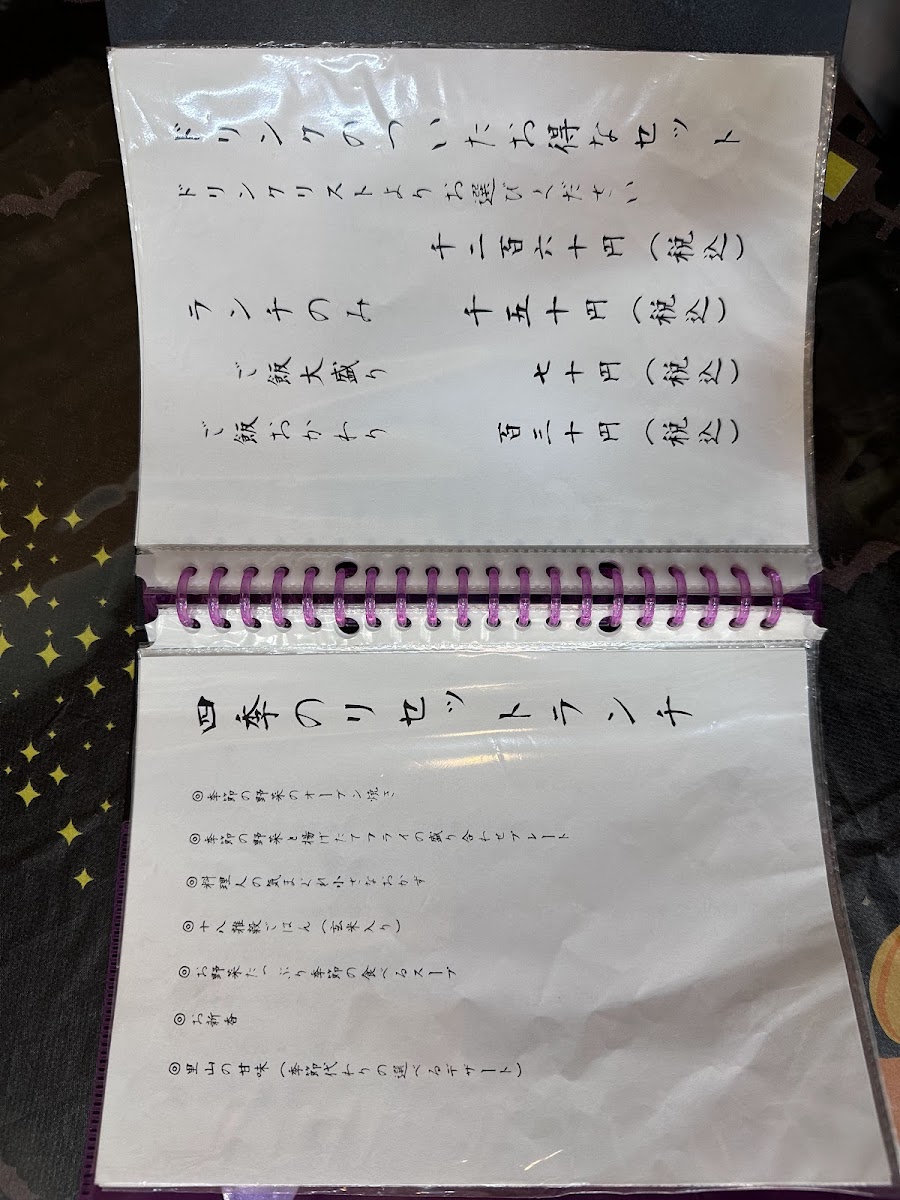 ドリンクのついたお得なセット
ドリンクリストよりお選びください
千二百六十円（税込）
ランチのみ 千五十円（税込）
ご飯大盛り 七十円（税込）
ご飯おかわり 百三十円（税込）
四季のリセットランチ
◎季節の野菜のオーブン焼き
◎季節の野菜と揚げたてフライの盛り合わせプレート
◎料理人の気まぐれ小さなおかず
◎十八雑穀ごはん（玄米入り）
◎お野菜たっぷり季節の食べるスープ
◎お新香
◎里山の甘味（季節代わりの選べるデザート）